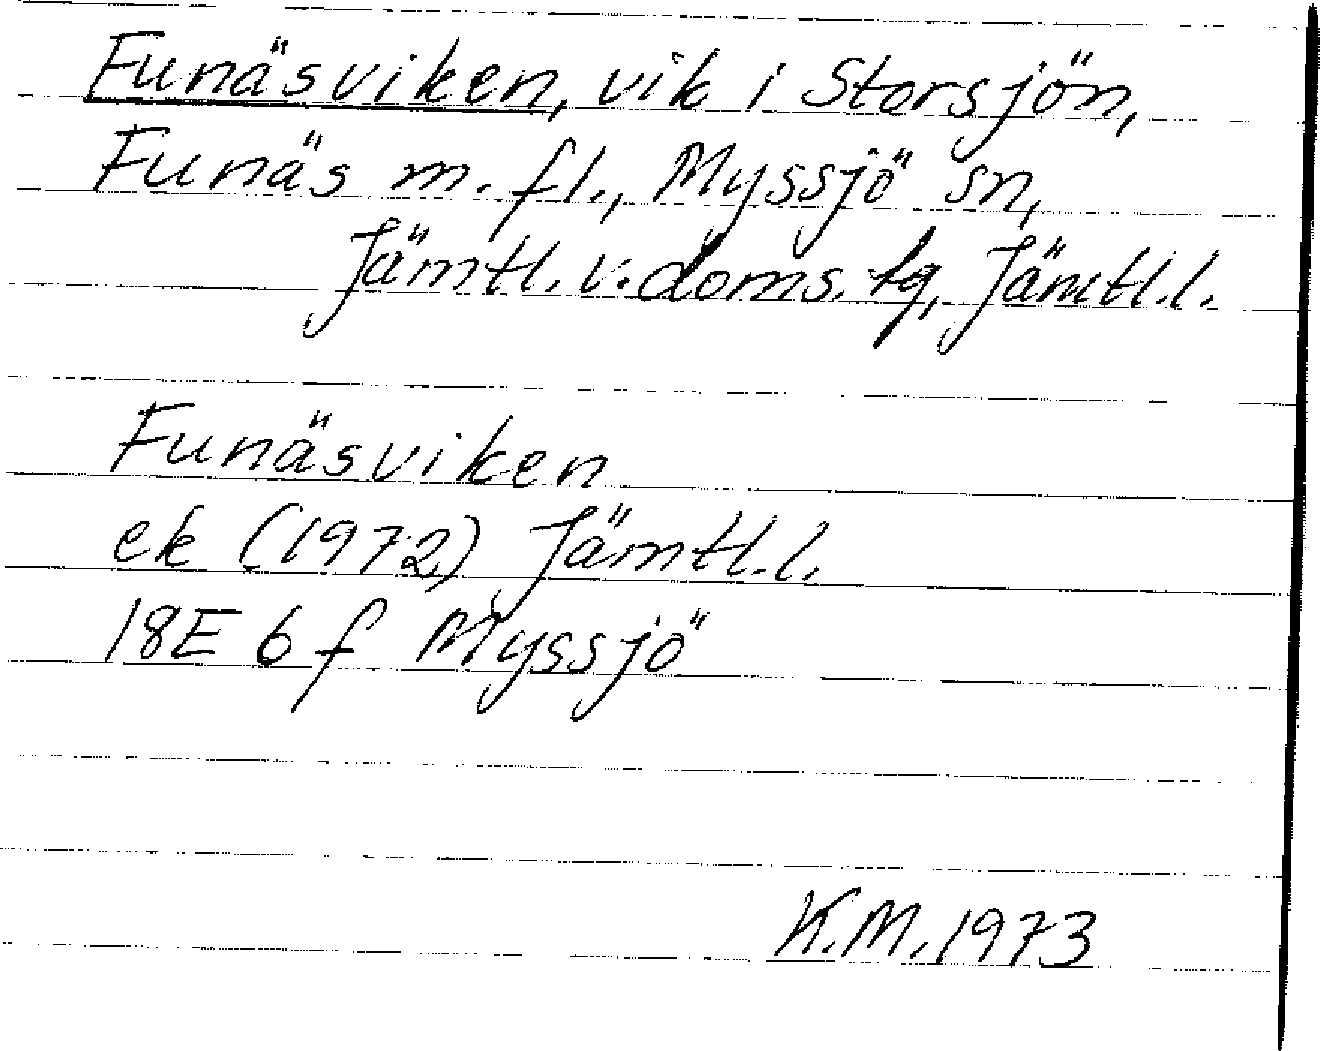 Funäsviken, vik i Storsjön,
Funäs m. fl., Myssjö sn,
Jämtl. v. doms. tg, Jämtl. l.
Funäsviken
ek (1972) Jämtl. l.
18E 6 f Myssjö
K.M. 1973